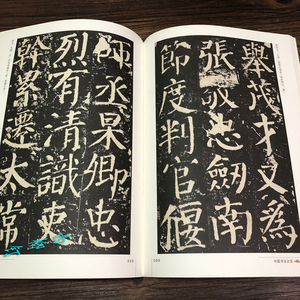 舉茂才又為
張敬忠劍南
節度判官偃
師丞杲卿忠
烈有清識吏
幹累遷太常